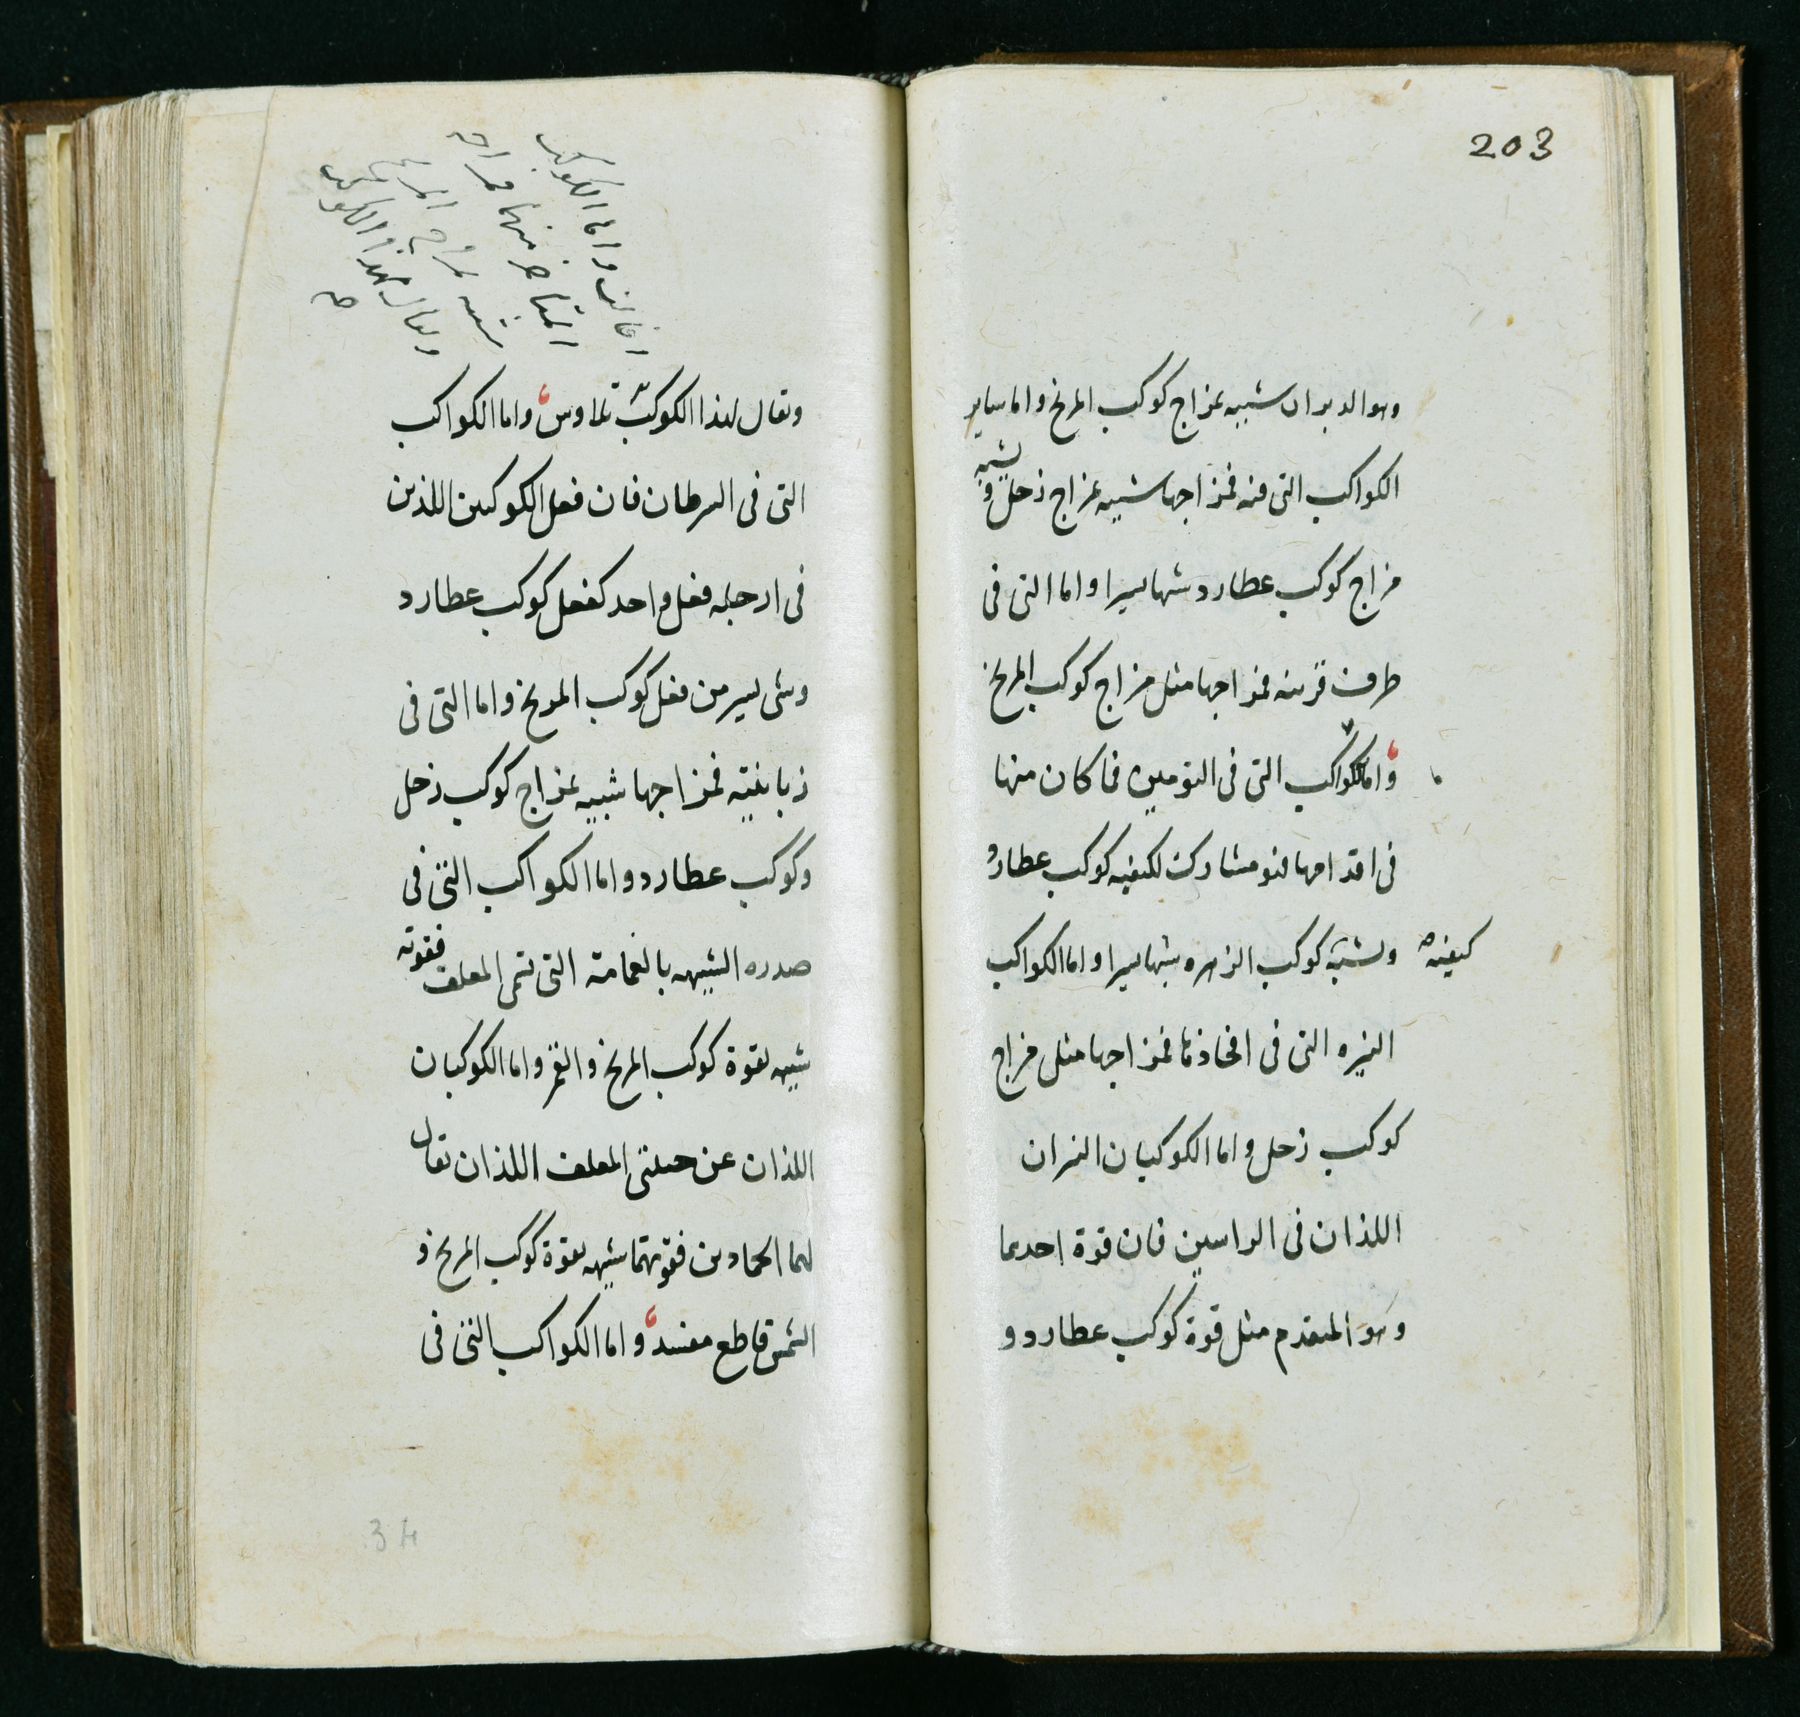 203
وهو الدبران شبيه بمزاج كوكب المريخ واما ساير
الكواكب التى فيه فمزاجها شبيه بمزاج زحل و يشبه
مزاج كوكب عطارد شبها يسيرا واما التى فى
طرف قرنيه فمزاجها مثل مزاج كوكب المريخ
واما الكواكب التى فى التومين فما كان منها
فى اقدامها فهو مشارك لكيفيه كوكب عطارد
ويشبه كوكب الزهره شبها يسيرا واما الكواكب
كيفية
النيره التى فى افخاذها فمزاجها مثل مزاج
كوكب زحل واما الكوكبان النيران
اللذان فى الراسين فان قوة احدهما
وهو المتقدم مثل قوة كوكب عطارد و
واما الكوكب
المتاخر منها فمزاجه
شبيه بمزاج المريخ
ويقال لهذا الكوكب
ويقال لهذا الكوكب واما الكواكب
التى فى السرطان فان فعل الكوكبين اللذين
فى ارجله فعل واحد كفعل كوكب عطارد
وشى يسير من فعل كوكب المريخ واما التى فى
زبانيته فمزاجها شبيه بمزاج كوكب زحل
وكوكب عطارد واما الكواكب التى فى
صدره الشبيهه بالغمامة التى تسمى المعلف فقوته
شبيهه بقوة كوكب المريخ والقمر واما الكوكبان
اللذان عن جنبتى المعلف اللذان يقال
لهما الحمارين فقوتهما شبيهه بقوة كوكب المريخ و
الشمس قاطع مفسد واما الكواكب التى فى
34